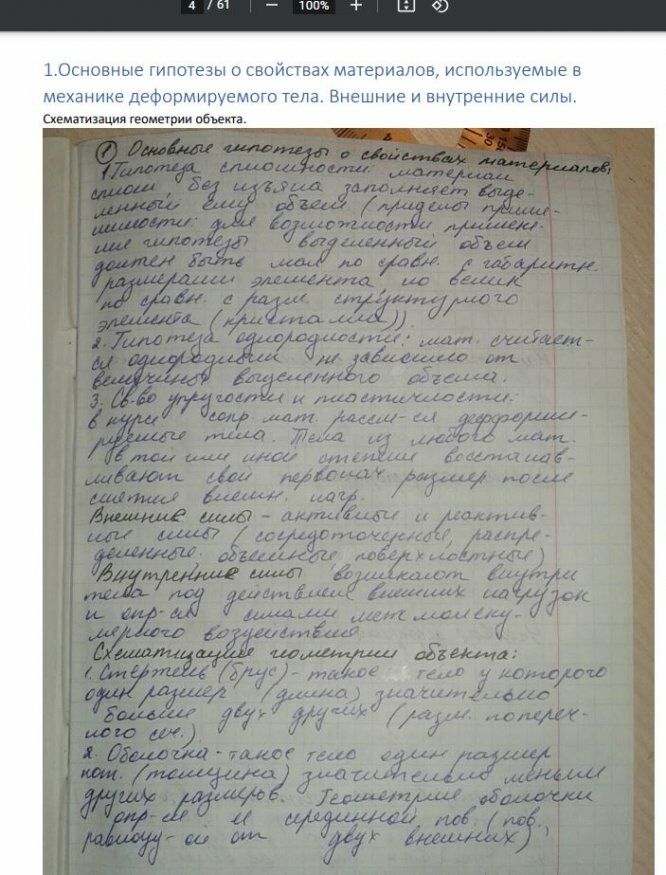 4 / 61
100%
1.Основные гипотезы о свойствах материалов, используемые в
механике деформируемого тела. Внешние и внутренние силы.
Схематизация геометрии объекта.
1 Основные гипотезы о свойствах материалов:
1. Гипотеза сплошности: материал
сплош. без изъяна заполняет выде-
ленный ему объем (приделы приме-
нимости: для возможности примене-
ния гипотезы выделенный объем
должен быть мал по сравн. с габаритн.
размерами элемента но велик
по сравн. с разм. структурного
элемента (кристалла))
2. Гипотеза однородности: мат. считает-
ся однородным не зависимо от
величины выделенного объема.
3. Св-во упругости и пластичности:
в курсе сопр. мат. рассм-ся дефформи-
руемые тела. Тела из любого мат.
в той или иной степени восстанав-
ливают свой первонач размер после
снятия внешн. нагр.
Внешние силы - активные и реактив-
ные силы (сосредоточенные, распре-
деленные. объемные поверхностные)
Внутренние силы возникают внутри
тела под действием внешних нагрузок
и опр-ся силами межмолеку-
лярного воздействия
Схематизация геометрии объекта:
1. Стержень (брус) - такое тело у которого
один размер (длина) значительно
больше двух других (разм. попереч-
ного сеч.)
2. Оболочка - такое тело один размер
кот. (толщина) значительно меньше
других размеров. Геометрия оболочки
опр-ся ее серединной пов. (пов.
равноуд-ой от двух внешних)